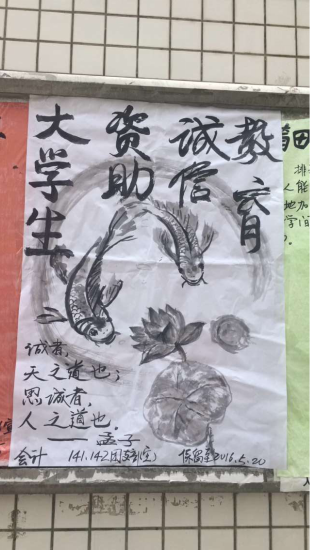 大学生
资助
诚信
教育
诚者，
天之道也；
思诚者，
人之道也。
——孟子
会计 141.142团支部(宣) 保留至2016.5.20
田
排
人能
地加
学间